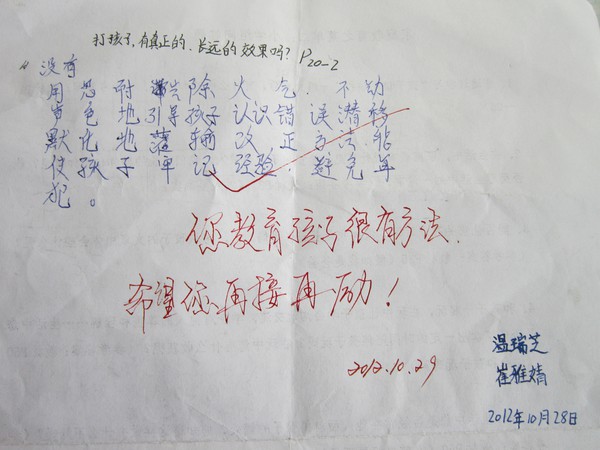 打孩子,有真正的、长远的效果吗? P20-2
没有
用忍耐 除火气,不动
声色地引导孩子认识错误潜移
默化地 辅改正方法,能
使孩子牢记经验,避免再
犯。
您教育孩子很有方法.
希望您再接再励!
2012.10.29
温瑞芝
崔雅婧
2012年10月28日